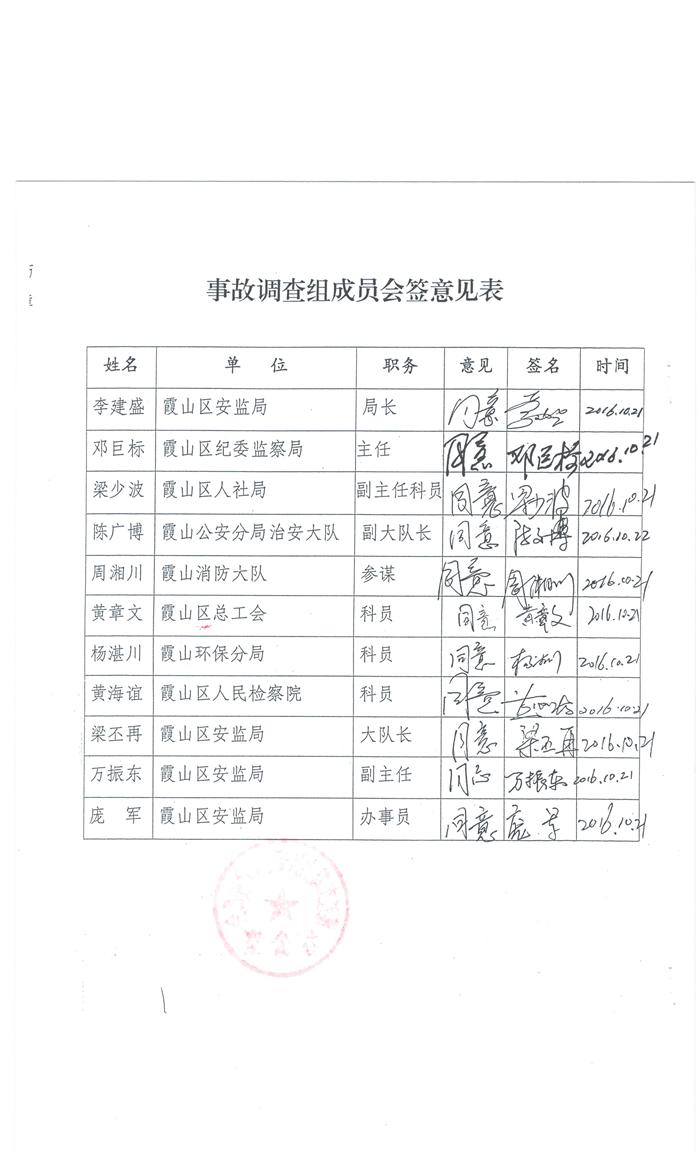 事故调查组成员会签意见表
姓名 单 位 职务 意见 签名 时间
李建盛 霞山区安监局 局长 同意 2016.10.21
邓巨标 霞山区纪委监察局 主任 同意 邓巨标 2016.10.21
梁少波 霞山区人社局 副主任科员 同意 梁少波 2016.10.21
陈广博 霞山公安分局治安大队 副大队长 同意 陈广博 2016.10.22
周湘川 霞山消防大队 参谋 同意 周湘川 2016.10.21
黄章文 霞山区总工会 科员 同意 黄章文 2016.10.21
杨湛川 霞山环保分局 科员 同意 杨湛川 2016.10.21
黄海谊 霞山区人民检察院 科员 同意 2016.10.21
梁丕再 霞山区安监局 大队长 同意 梁丕再 2016.10.21
万振东 霞山区安监局 副主任 同意 万振东 2016.10.21
庞 军 霞山区安监局 办事员 同意 庞军 2016.10.21